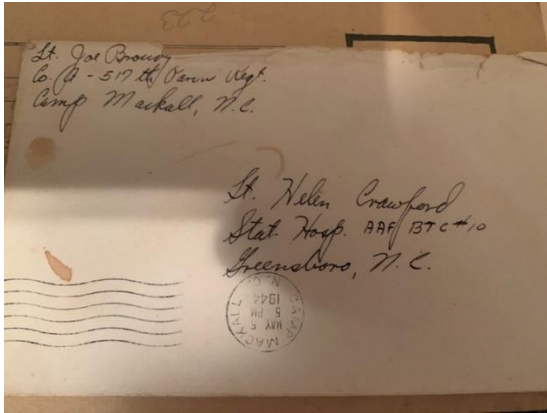 Lt. Joe
Co. A - 517th Regt.
Camp Mackall, N.C.
Lt. Helen Crawford
Stat. Hosp. AAF BTC #10
Greensboro, N.C.
CAMP MACKALL
MAY 5
5 PM
1944
N.C.